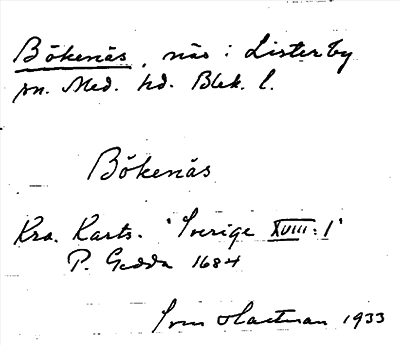 Bökenäs, näs i Listerby
sn. Med. hd. Blek. l.
Bökenäs
Kra. Karts. "Sverige XVIII:1"
P. Gedda 1684
Sven Hartman 1933